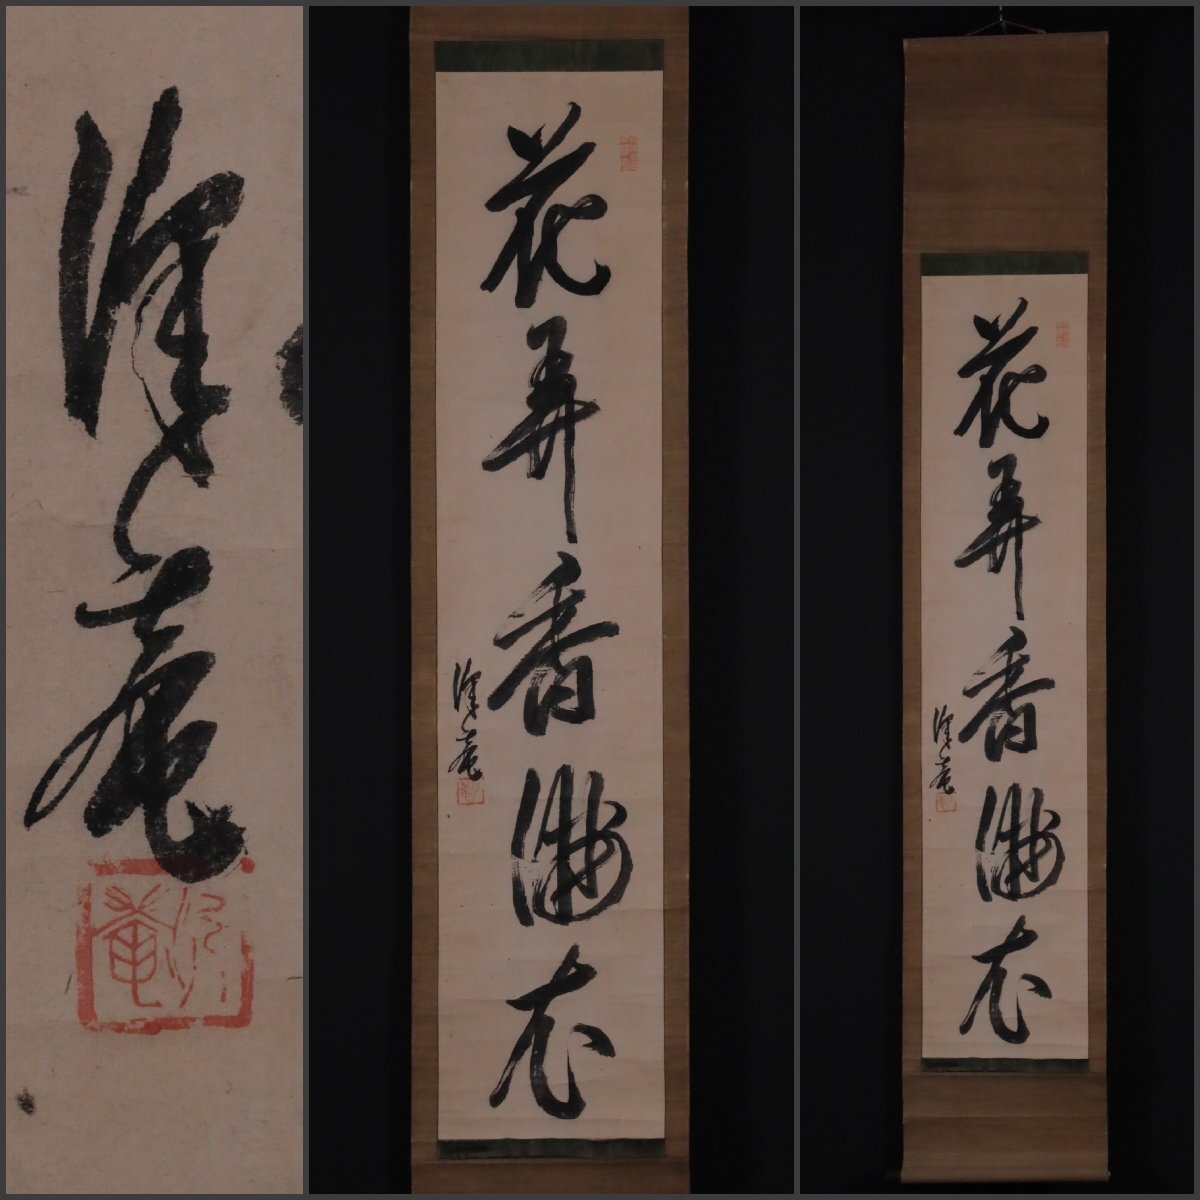 澤庵
花弄香満衣
澤庵
花弄香満衣
澤庵